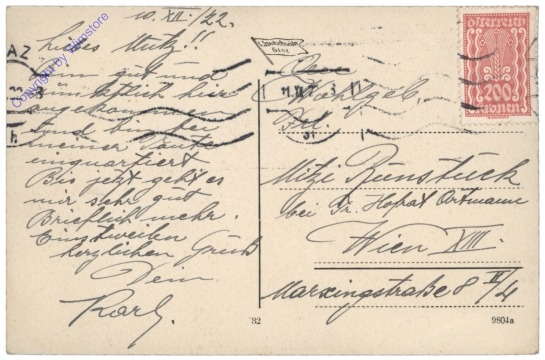 10. XII. /22.
Liebes Mutz!!
Bin gut und
pünktlich hier
angekommen
und bin bei
meiner Tante
einquartiert
Bis jetzt geht es
mir sehr gut
Brieflich mehr.
Einstweilen
herzlichen Gruß
Dein
Karl.
AZ
Copyright by filmstore
11. XI
österreich
200
kronen
Wohlgeb.
Frl.
Mitzi Rünstück
bei Fr. Hofrat Ortmann
Wien XIII.
Marxingstraße 8 II/4
82
9804a